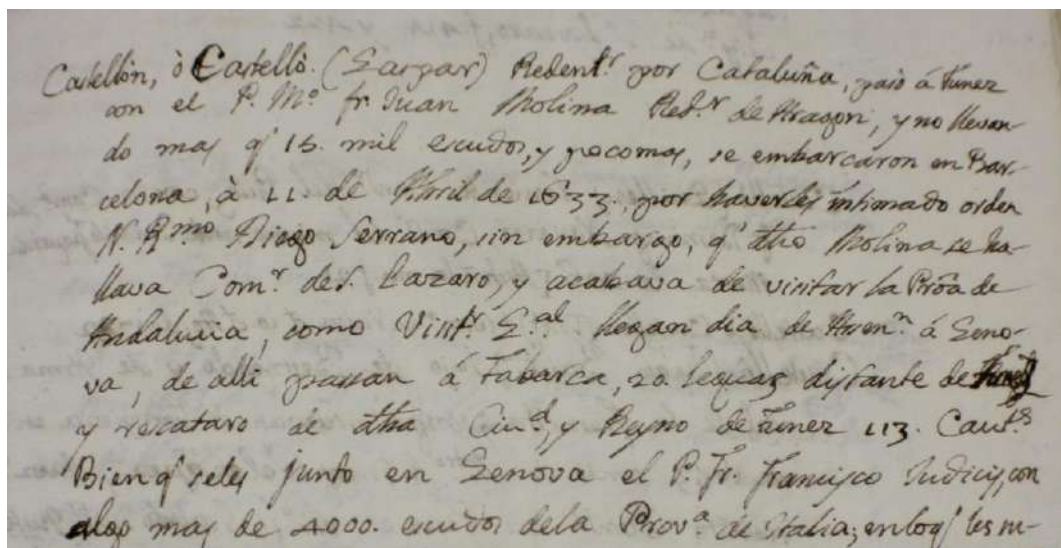 Castellón, ò Castelló. (Gaspar) Redent.r por Cataluña, pasó á Tunez
con el P. M.o fr. Juan Molina Red.r de Aragon, y no llevan-
do mas q' 15. mil escudos, y poco mas, se embarcaron en Bar-
celona, à 11. de Abril de 1633., por haverles intimado orden
N. R.mo Diego Serrano, sin embargo, q' dho Molina se ha-
llava Com.r de S. Lazaro, y acabava de visitar la Prõa de
Andalucia, como Visit.r G.al llegan dia de Ascen.n á Geno-
va, de alli passan á Tabarca, 20. leguas distante de Tunez
y rescataro de dha Ciu.d, y Reyno de Tunez 113. Caut.s
Bien q' seles junto en Genova el P. Fr. Francisco Iudicis, con
algo mas de 4000. escudos dela Prov.a de Italia; enloq' les m-